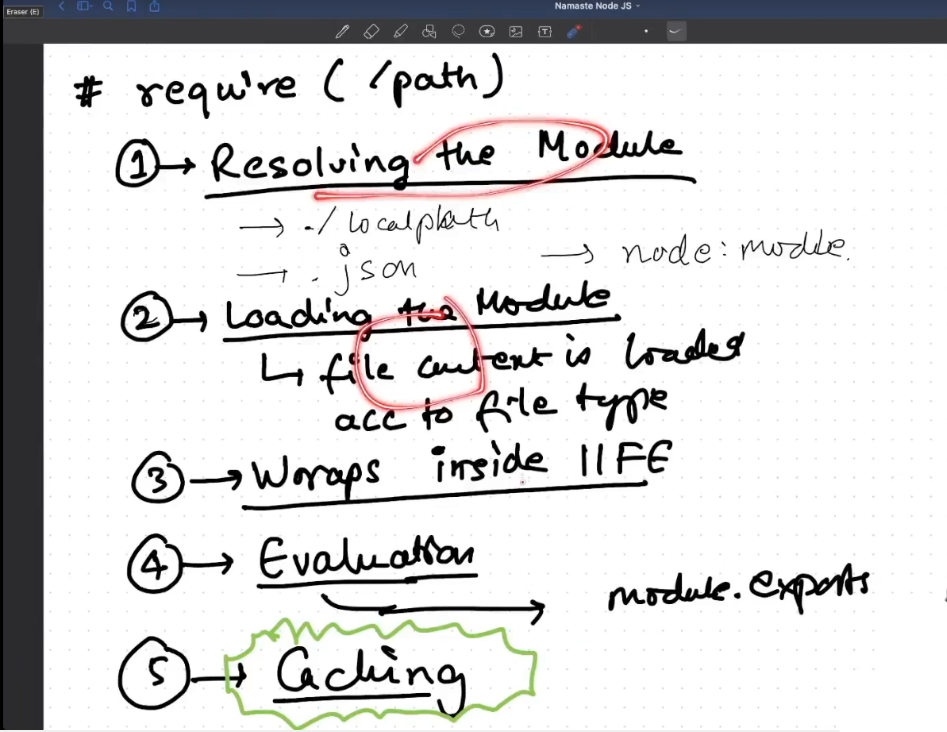 Eraser (E)
Namaste Node JS
# require ( /path)
1 → Resolving the Module
→ ./localpath
→ .json → node: module.
2 → Loading the Module
↳ file content is loaded
acc to file type
3 → Wraps inside IIFE
4 → Evaluation
→ module.exports
5 → Caching